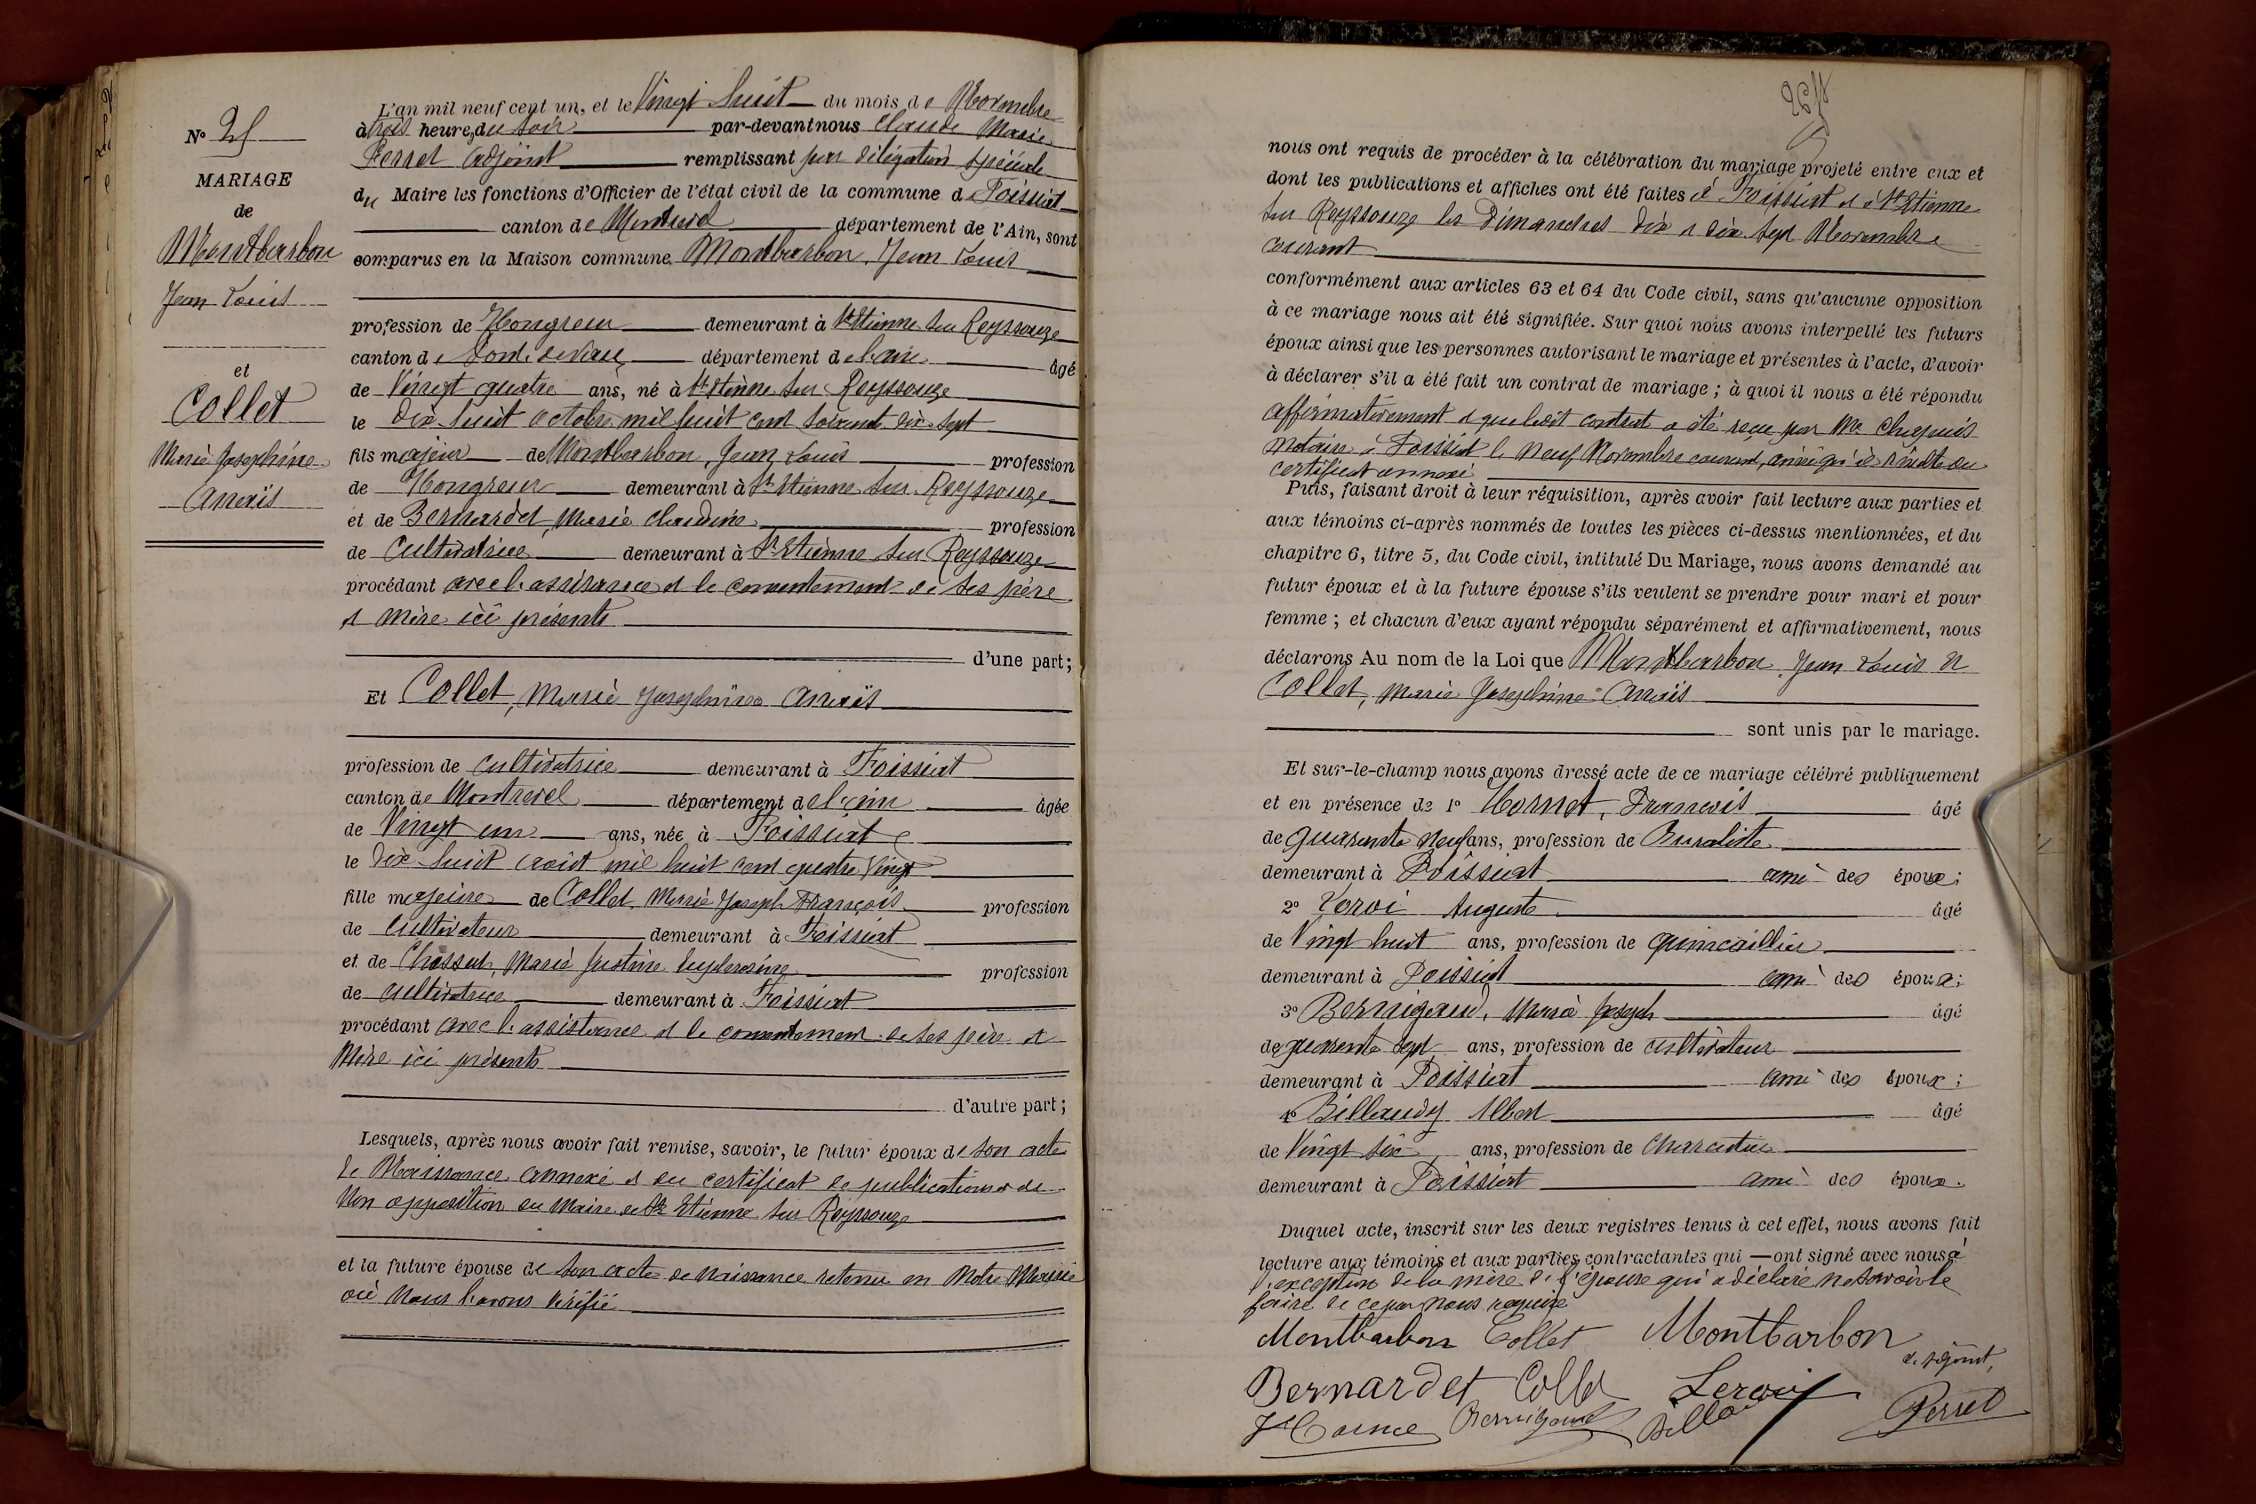 N° 25
MARIAGE
de
Montbarbon
Jean Louis
et
Collet
Marie Joséphine
Anaïs
L'an mil neuf cent un, et le Vingt huit du mois de Novembre
à trois heures du soir par-devant nous Claude Marie
Perret adjoint remplissant par délégation spéciale
du Maire les fonctions d'Officier de l'état civil de la commune de Foissiat
canton de Montrevel département de l'Ain, sont
comparus en la Maison commune Montbarbon, Jean Louis
profession de Hongreur demeurant à St Etienne sur Reyssouze
canton de Pont de Vaux département de l'ain âgé
de Vingt quatre ans, né à St Etienne sur Reyssouze
le dix huit octobre mil huit cent soixante dix sept
fils majeur de Montbarbon, Jean Louis profession
de Hongreur demeurant à St Etienne sur Reyssouze
et de Bernardet, Marie Claudine profession
de Cultivatrice demeurant à St Etienne sur Reyssouze
procédant avec l'assistance et le consentement de ses père
et mère ici présents
d'une part;
Et Collet, Marie Joséphine Anaïs
profession de cultivatrice demeurant à Foissiat
canton de Montrevel département de l'ain âgée
de Vingt un ans, née à Foissiat
le dix huit août mil huit cent quatre Vingt
fille majeure de Collet, Marie Joseph François profession
de cultivateur demeurant à Foissiat
et de Marie Justine Euphrosine profession
de cultivatrice demeurant à Foissiat
procédant avec l'assistance et le consentement de ses père et
Mère ici présents
d'autre part;
Lesquels, après nous avoir fait remise, savoir, le futur époux de son acte
de Naissance annexé et du certificat de publications et de
Non opposition du Maire de St Etienne sur Reyssouze
et la future épouse de son acte de naissance retenu en Notre Mairie
où Nous l'avons Vérifié
nous ont requis de procéder à la célébration du mariage projeté entre eux et
dont les publications et affiches ont été faites à Foissiat et à St Etienne
sur Reyssouze les Dimanches dix et dix sept Novembre
courant
conformément aux articles 63 et 64 du Code civil, sans qu'aucune opposition
à ce mariage nous ait été signifiée. Sur quoi nous avons interpellé les futurs
époux ainsi que les personnes autorisant le mariage et présentes à l'acte, d'avoir
à déclarer s'il a été fait un contrat de mariage; à quoi il nous a été répondu
affirmativement et que ledit contrat a été reçu par Me Chapuis
Notaire à Foissiat le neuf Novembre courant, ainsi qu'il résulte du
certificat annexé
Puis, faisant droit à leur réquisition, après avoir fait lecture aux parties et
aux témoins ci-après nommés de toutes les pièces ci-dessus mentionnées, et du
chapitre 6, titre 5, du Code civil, intitulé Du Mariage, nous avons demandé au
futur époux et à la future épouse s'ils veulent se prendre pour mari et pour
femme; et chacun d'eux ayant répondu séparément et affirmativement, nous
déclarons Au nom de la Loi que Montbarbon Jean Louis et
Collet, Marie Joséphine Anaïs
sont unis par le mariage.
Et sur-le-champ nous avons dressé acte de ce mariage célébré publiquement
et en présence de 1° François âgé
de quarante neuf ans, profession de Buraliste
demeurant à Foissiat ami des époux;
2° Auguste âgé
de Vingt huit ans, profession de quincaillier
demeurant à Foissiat ami des époux;
3° Bernigaud, Marie Joseph âgé
de quarante sept ans, profession de cultivateur
demeurant à Foissiat ami des époux;
4° Billoudy Albert âgé
de Vingt six ans, profession de Charcutier
demeurant à Foissiat ami des époux.
Duquel acte, inscrit sur les deux registres tenus à cet effet, nous avons fait
lecture aux témoins et aux parties contractantes qui — ont signé avec nous à
l'exception de la mère de l'épouse qui a déclaré ne savoir le
faire de ce par Nous requise
Montbarbon Collet Montbarbon
Bernardet Collet Leroi L'adjoint,
Bernigaud Perret